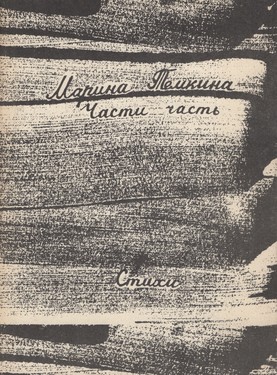 Марина Тёмкина
Части часть
Стихи